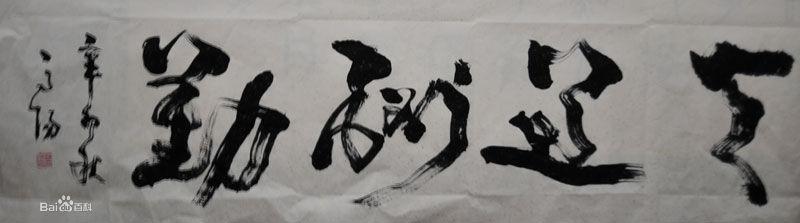 天道酬勤
辛卯秋
Bai百科